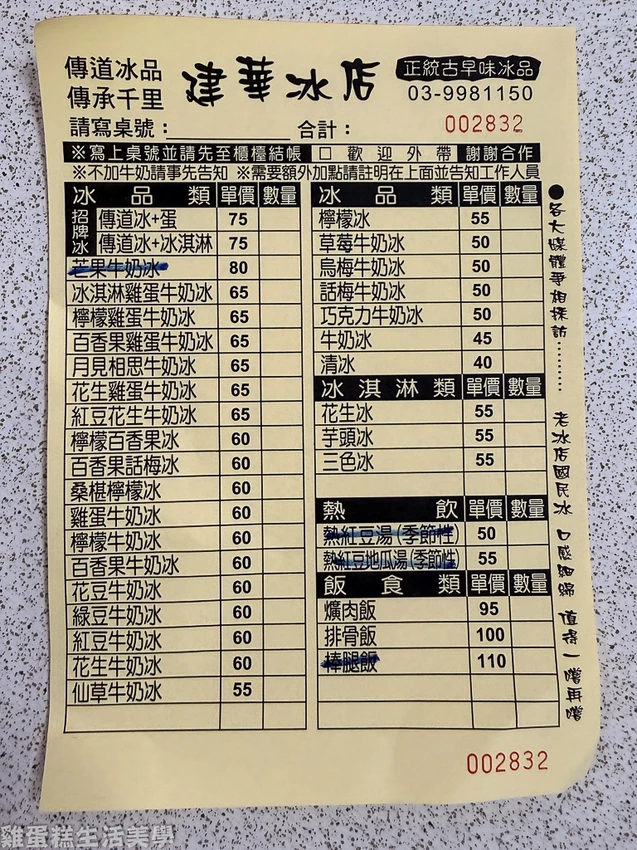 傳道冰品
傳承千里
建華冰店
正統古早味冰品
03-9981150
請寫桌號：＿＿＿＿＿ 合計：
002832
※寫上桌號並請先至櫃檯結帳 □ 歡迎外帶 謝謝合作
※不加牛奶請事先告知 ※需要額外加點請註明在上面並告知工作人員
冰品類 單價 數量
招牌冰
傳道冰+蛋 75
傳道冰+冰淇淋 75
芒果牛奶冰 80
冰淇淋雞蛋牛奶冰 65
檸檬雞蛋牛奶冰 65
百香果雞蛋牛奶冰 65
月見相思牛奶冰 65
花生雞蛋牛奶冰 65
紅豆花生牛奶冰 65
檸檬百香果冰 60
百香果話梅冰 60
桑椹檸檬冰 60
雞蛋牛奶冰 60
檸檬牛奶冰 60
百香果牛奶冰 60
花豆牛奶冰 60
綠豆牛奶冰 60
紅豆牛奶冰 60
花生牛奶冰 60
仙草牛奶冰 55
冰品類 單價 數量
檸檬冰 55
草莓牛奶冰 50
烏梅牛奶冰 50
話梅牛奶冰 50
巧克力牛奶冰 50
牛奶冰 45
清冰 40
冰淇淋類 單價 數量
花生冰 55
芋頭冰 55
三色冰 55
熱飲 單價 數量
熱紅豆湯(季節性) 50
熱紅豆地瓜湯(季節性) 55
飯食類 單價 數量
爌肉飯 95
排骨飯 100
棒腿飯 110
●各大媒體爭相採訪⋯⋯⋯ 老冰店國民冰 口感細綿 值得一嚐再嚐
002832
雞蛋糕生活美學